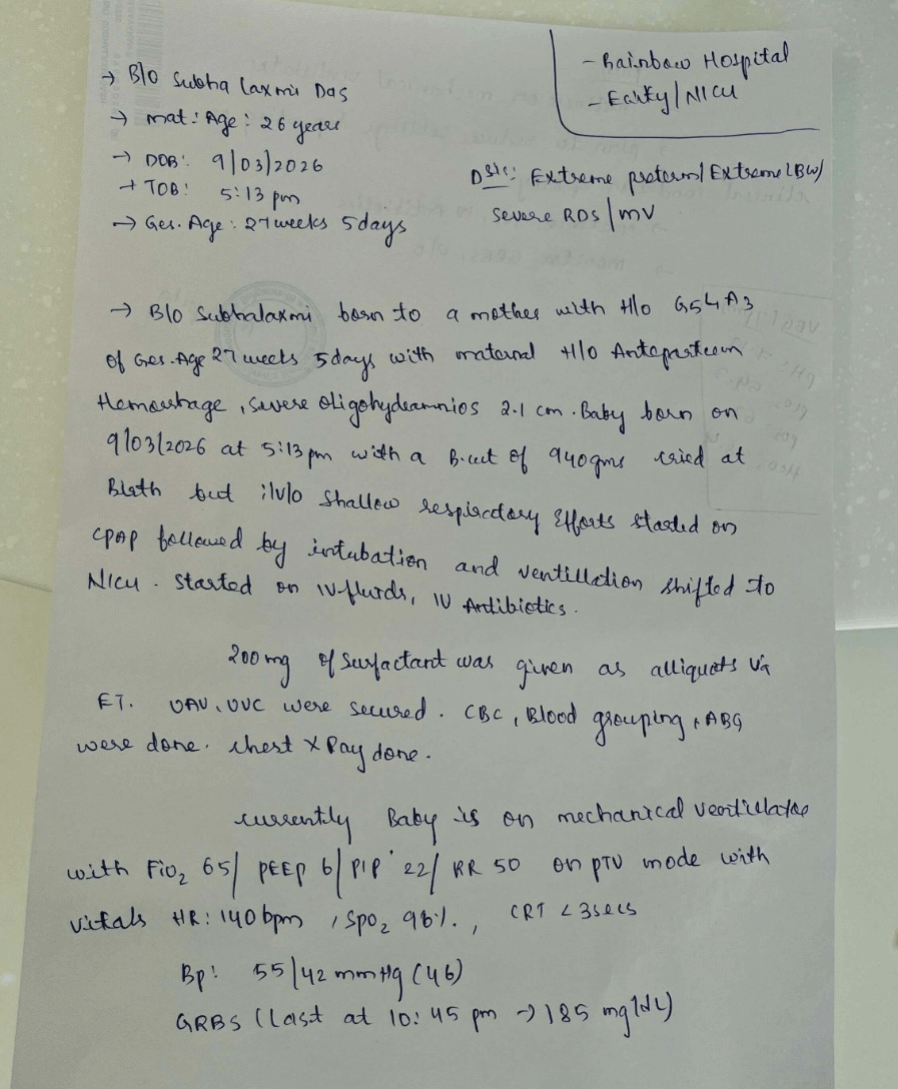 - Rainbow Hospital
- Earky/NICU
→ B/O Subha Laxmi Das
→ mat: Age: 26 years
→ DOB: 9/03/2026
→ TOB: 5:13 pm
→ Ges. Age: 27 weeks 5 days
Dsis: Extreme preterm/Extreme LBW/
Severe RDS/MV
→ B/O Subhalaxmi born to a mother with H/o G5L1A3
of Ges. Age 27 weeks 5 days with maternal H/o Antepartum
Hemorrhage, Severe Oligohydramnios 2.1 cm. Baby born on
9/03/2026 at 5:13 pm with a B.wt of 940gms cried at
Birth but i/v/o Shallow respiratory Efforts started on
CPAP followed by intubation and ventillation shifted to
NICU. Started on IV fluids, IV Antibiotics.
200mg of Surfactant was given as alliquots via
ET. UAV, UVC were secured. CBC, Blood grouping, ABG
were done. chest X Ray done.
currently Baby is on mechanical ventillator
with FiO2 65/ PEEP 6/ PIP 22/ RR 50 on PTV mode with
vitals HR: 140 bpm, SpO2 96%., CRT <3secs
Bp: 55/42 mmHg (46)
GRBS (Last at 10:45 pm → 185 mg/dL)